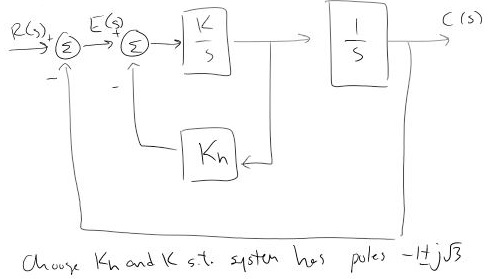 R(s) + Σ E(s) + Σ K/s 1/s C(s)
- -
Kh
Choose Kh and K s.t. system has poles -1±j√3